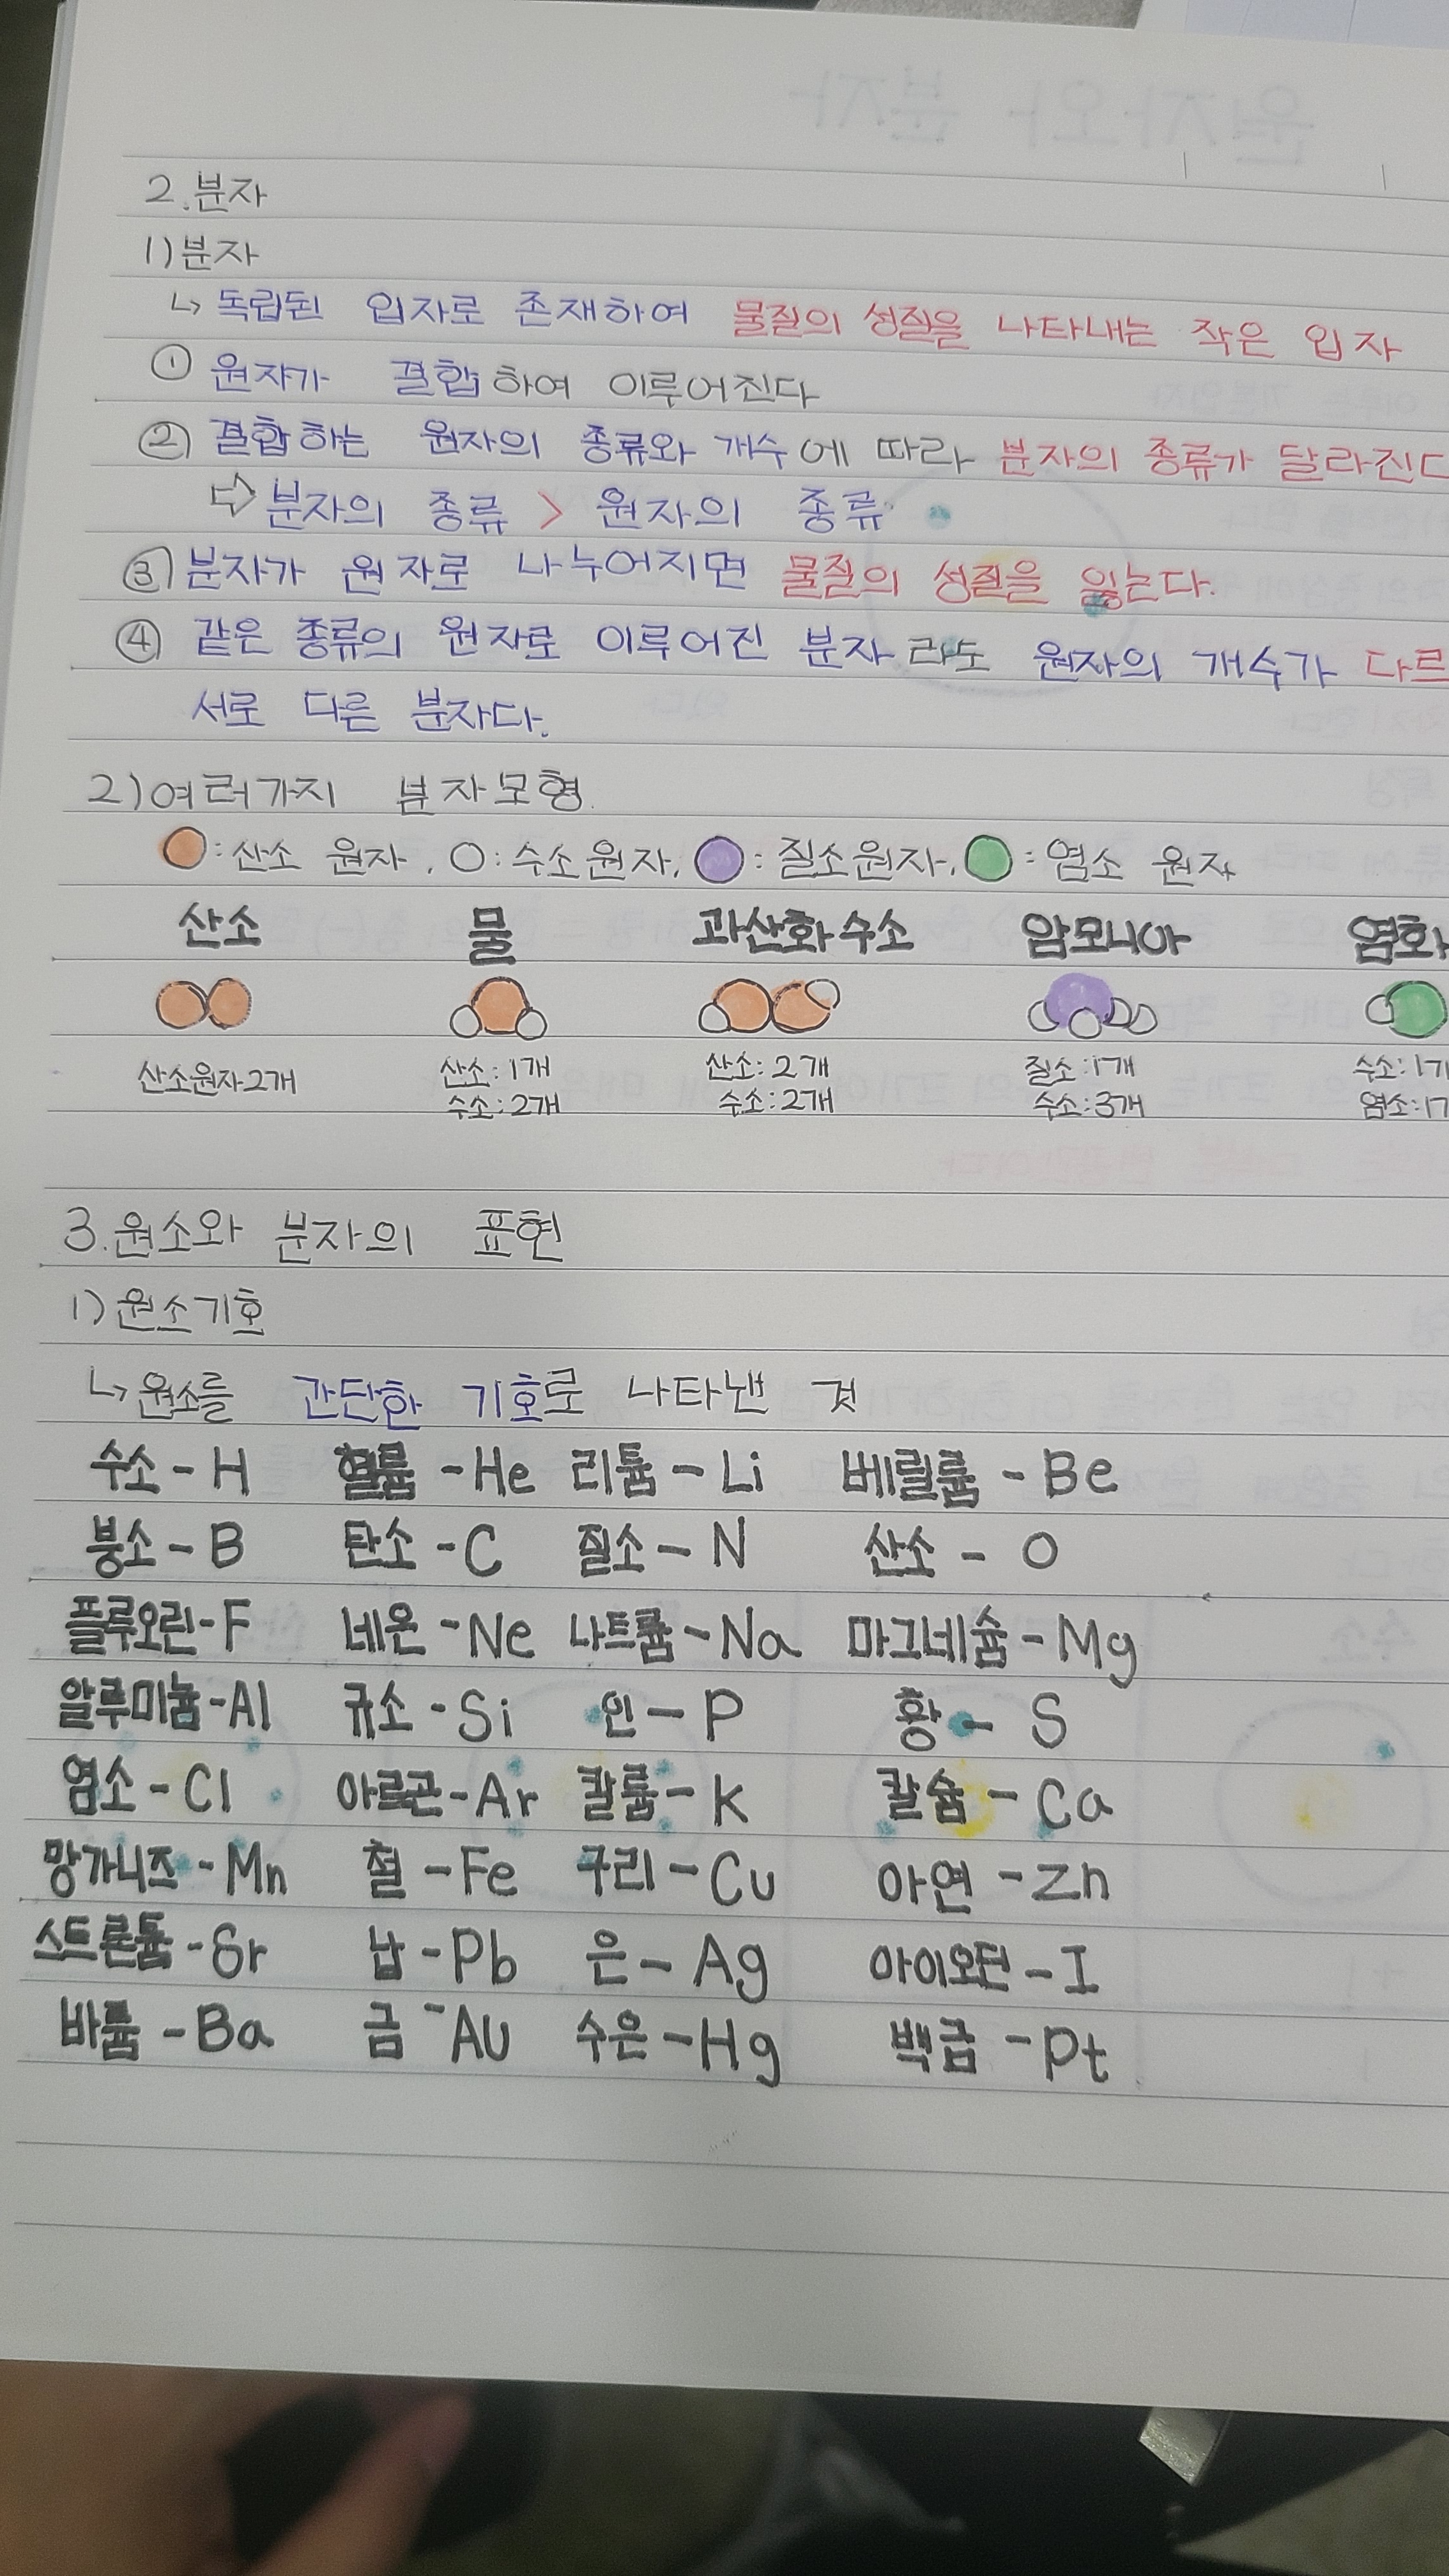 2.분자
1)분자
↳ 독립된 입자로 존재하여 물질의 성질을 나타내는 작은 입자
① 원자가 결합하여 이루어진다
② 결합하는 원자의 종류와 개수에 따라 분자의 종류가 달라진다
⇨ 분자의 종류 > 원자의 종류
③ 분자가 원자로 나누어지면 물질의 성질을 잃는다.
④ 같은 종류의 원자로 이루어진 분자라도 원자의 개수가 다르
서로 다른 분자다.
2)여러가지 분자모형.
:산소 원자, :수소원자, :질소원자, :염소 원자
산소 물 과산화수소 암모니아 염화
산소원자2개 산소:1개 산소:2개 질소:1개 수소:1개
수소:2개 수소:2개 수소:3개 염소:1
3.원소와 분자의 표현
1)원소기호
↳원소를 간단한 기호로 나타낸 것
수소-H 헬륨-He 리튬-Li 베릴륨-Be
붕소-B 탄소-C 질소-N 산소-O
플루오린-F 네온-Ne 나트륨-Na 마그네슘-Mg
알루미늄-Al 규소-Si 인-P 황-S
염소-Cl 아르곤-Ar 칼륨-K 칼슘-Ca
망가니즈-Mn 철-Fe 구리-Cu 아연-Zn
스트론튬-Sr 납-Pb 은-Ag 아이오딘-I
바륨-Ba 금-Au 수은-Hg 백금-Pt